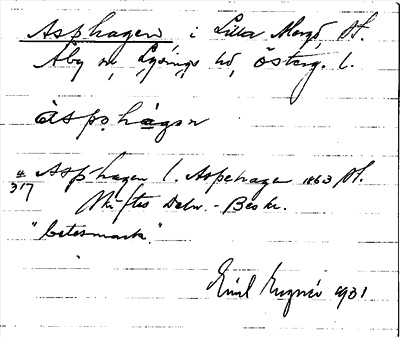 Asphagen i Lilla Mar Hf.
Åby sn, Lysings hd, Österg. l.
àspo̩hágan
# 317 Asphagen l. Aspehage 1863 Hf.
Skiftes Deln. - Beskr.
"betesmark".
Emil 1931